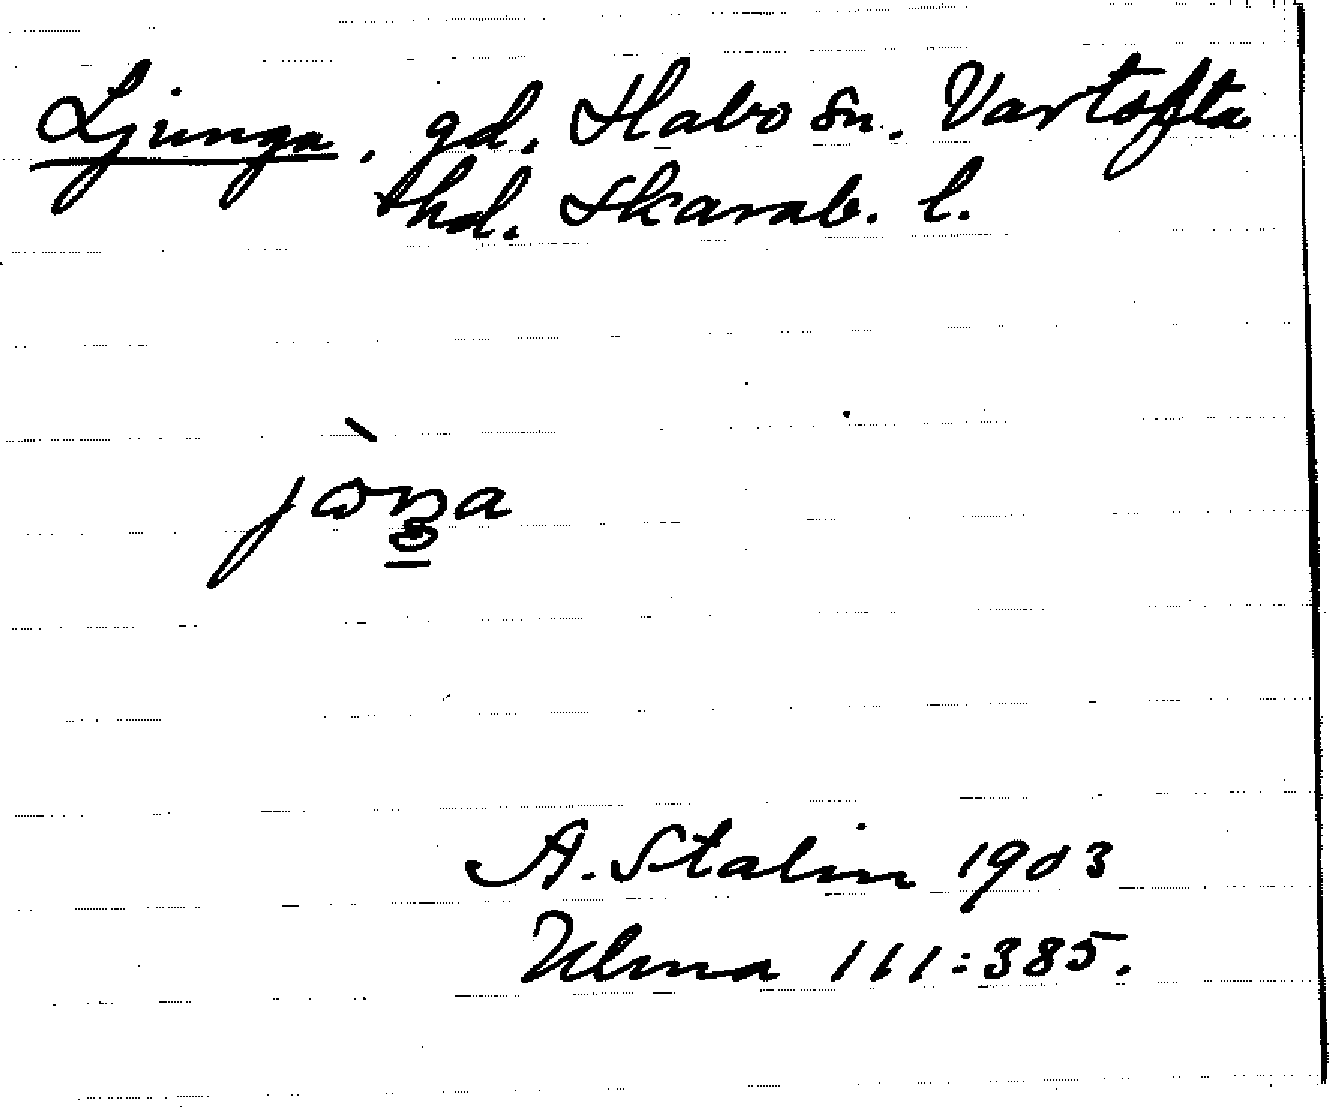 Ljunga, gd. Habo sn. Vartofta
hd. Skarab. l.
A. Stalin 1903
Ulma 111:385.